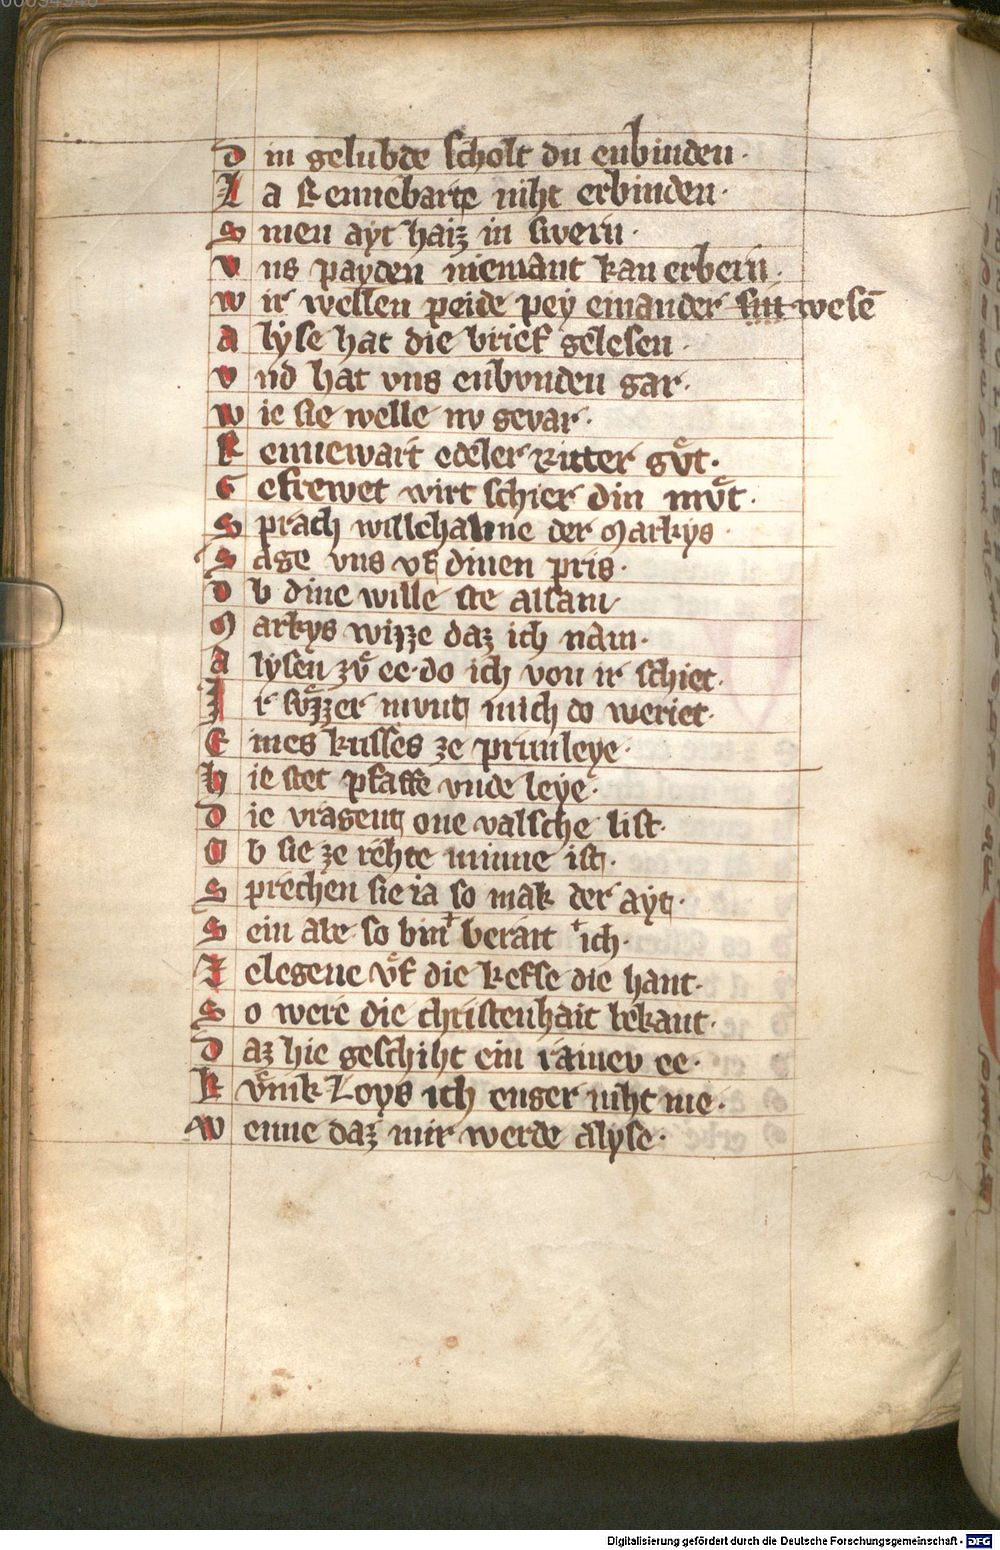 D in gelubde scholt du enbinden·
L a Rennebarte niht erbinden·
S inen ayt haiz in swern·
V ns payden niemant kan erbern·
W ir wellen peide pey einander sin wesē
A lyse hat die brief gelesen·
V nd hat vns enbunden gar·
W ie sie welle nv gevar·
R ennewart edeler Ritter gůt·
G efrewet wirt schier din můt·
S prach willehalme der Markys·
S age vns vf dinen pris·
O b dine wille ste alsam
M arkys wizze daz ich nam·
A lysen zů ee·do ich von ir schiet·
I r sůzzer munt mich do weriet·
E ines kusses ze priuileye·
H ie stet pfaffe vnde leye·
D ie vragent one valsche list·
O b sie ze rehte minne ist·
S prechen sie ia so mak der ayt·
S ein abe so bin berait ich·
Z elegene vf die kefse die hant·
S o were die christenhait bekant·
D az hie geschiht ein rainev ee·
K ůnik Loys ich enger niht me·
W enne daz mir werde alyse·
Digitalisierung gefördert durch die Deutsche Forschungsgemeinschaft - DFG